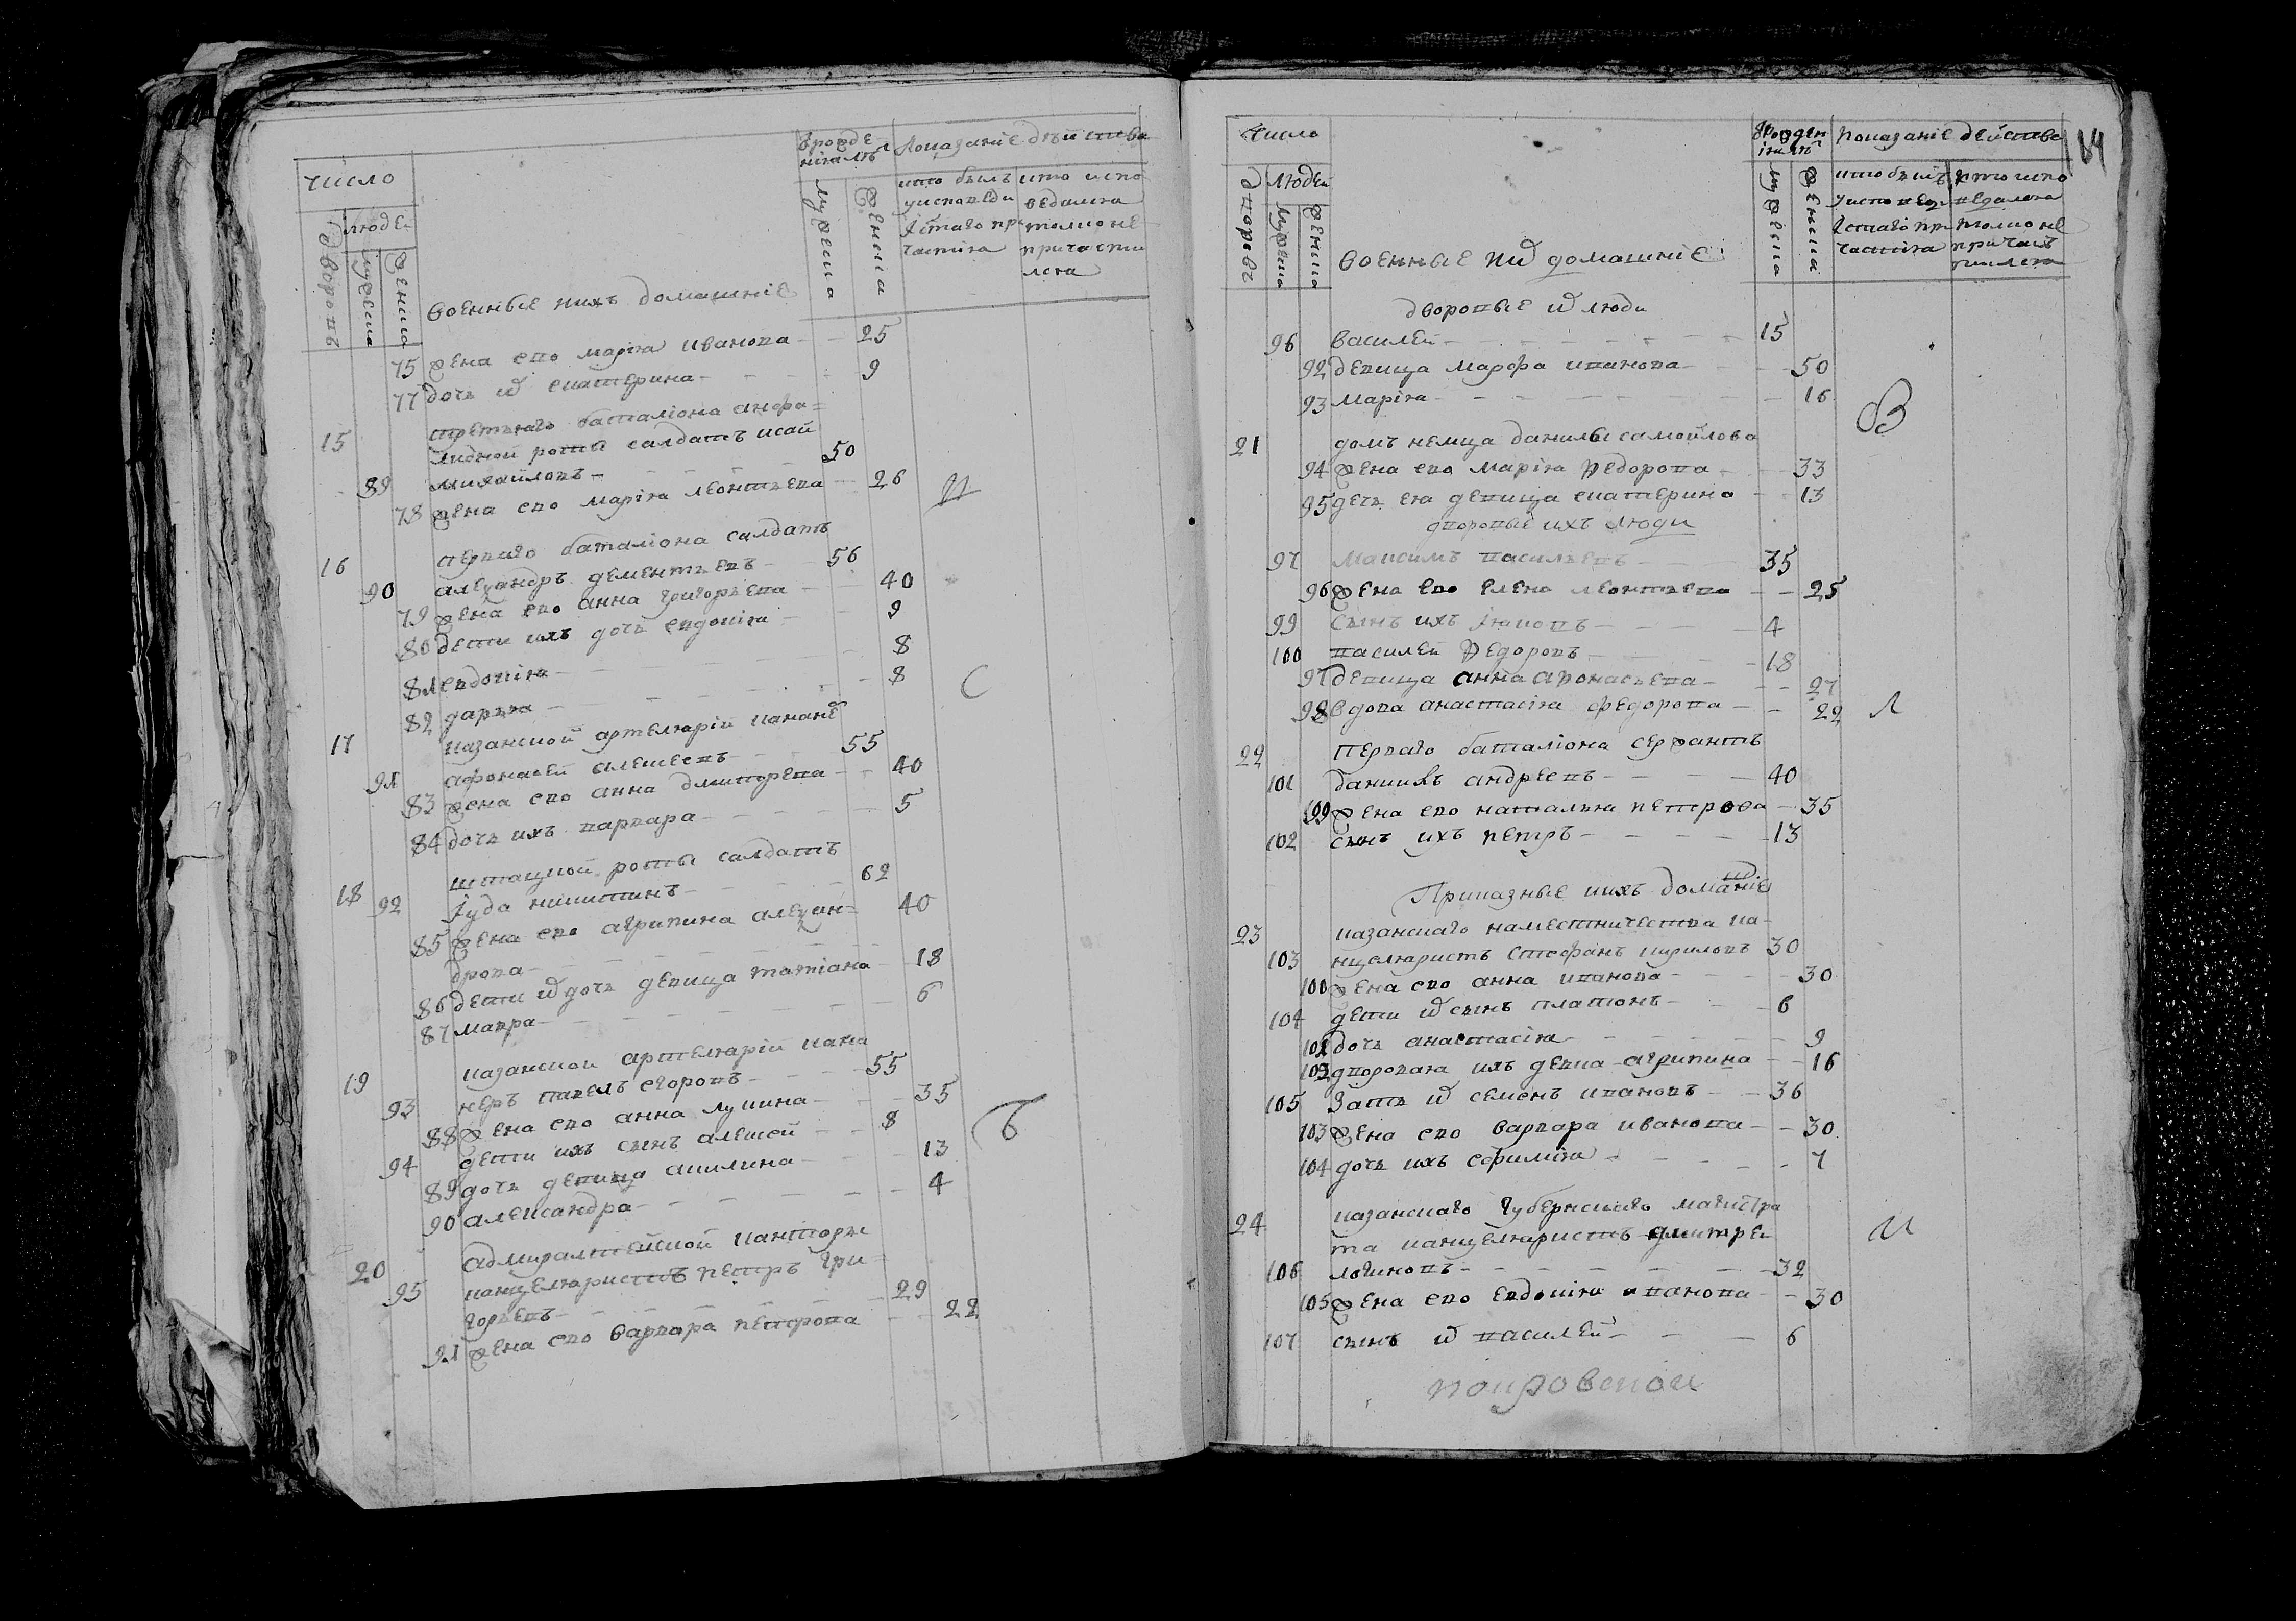 число
людеи
дворовъ
мужеска
женска
военные ихъ домашние
от рождения летъ
мужеска
женска
показание деиства
кто былъ у исповеди и стаго причастия
кто исповедался токмо не причастился
75 жена ево мария иванова 25
77 дочь их екатерина 9
15 третьяго баталиона
роты салдатъ исаи
89 михаиловъ 50
78 жена ево мария леонтьева 26
16 перваго баталиона салдатъ
90 алеѯандръ дементьевъ 56
79 жена ево анна григорьева 40
80 дети ихъ дочь евдокия 9
81 евдокия 8
82 дарья 8
17 казанской артелюрии канане
91 афонасеи алексеевъ 55
83 жена ево анна дмитрева 40
84 дочь ихъ варвара 5
18 штацкой роты салдатъ
92 iуда никитинъ 62
85 жена ево агрипина алеѯан=
дрова 40
86 дети их дочь девица татиана 18
87 мавра 6
19 казанской артелюрии кана
93 неръ павелъ егоровъ 55
88 жена ево анна лукина 35
94 дети ихъ сынъ алексей 8
89 дочь девица акилина 13
90 александра 4
20 адмиралтейской канторы
95 канцеляристъ петръ гри=
горьевъ 29
91 жена ево варвара петрова 22
число
людей
дворовъ
мужеска
женска
военные их домашние
от рождения летъ
мужеска
женска
показание действа
кто былъ у исповеди и стаго причастия
кто исповедался токмо не причастился
дворовые их люди
96 василей 15
92 девица марфа иванова 50
93 мария 16
21 домъ немца данилы самойлова
94 жена ево мария ѳедорова 33
95 дочь ея девица екатерина 13
дворовые ихъ люди
97 максимъ васильевъ 35
96 жена ево елена леонтьева 25
99 сынъ ихъ iаковъ 4
100 василей ѳедоровъ 18
97 девица анна афонасьева 27
98 вдова анастасия федорова 22
22 перваго баталиона сержантъ
101 данилъ андреевъ 40
99 жена ево наталья петрова 35
102 сынъ ихъ петръ 13
Приказные ихъ домашние
23 казанскаго наместничества ка-
103 нцеляристъ стефанъ кириловъ 30
100 жена ево анна иванова 30
104 дети их сынъ платонъ 6
101 дочь анастасия 9
102 дворовая ихъ девка агрипина 16
105 Зять их семенъ ивановъ 36
103 жена ево варвара иванова 30
104 дочь ихъ ефимия 7
24 казанскаго губернскаго магистра
та канцеляристъ дмитреи
106 логиновъ 32
105 жена ево евдокия иванова 30
107 сынъ их василей 6
покровской